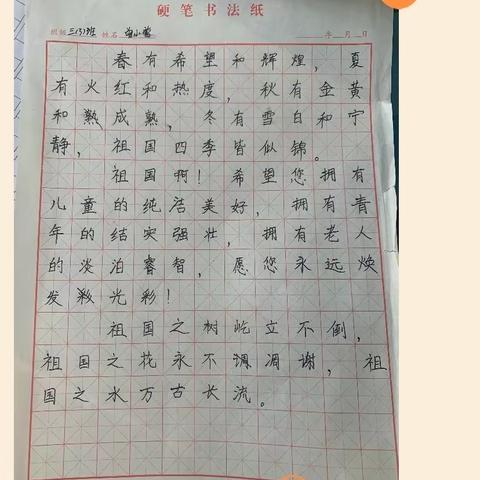 硬笔书法纸
班级 三(3)班 姓名 年 月 日
春有希望和辉煌，夏
有火红和热度，秋有金黄
和熟成熟，冬有雪白和宁
静，祖国四季皆似锦。
祖国啊！希望您拥有
儿童的纯洁美好，拥有青
年的结实强壮，拥有老人
的淡泊睿智，愿您永远焕
发彩光彩！
祖国之树屹立不倒，
祖国之花永不凋凋谢，祖
国之水万古长流。